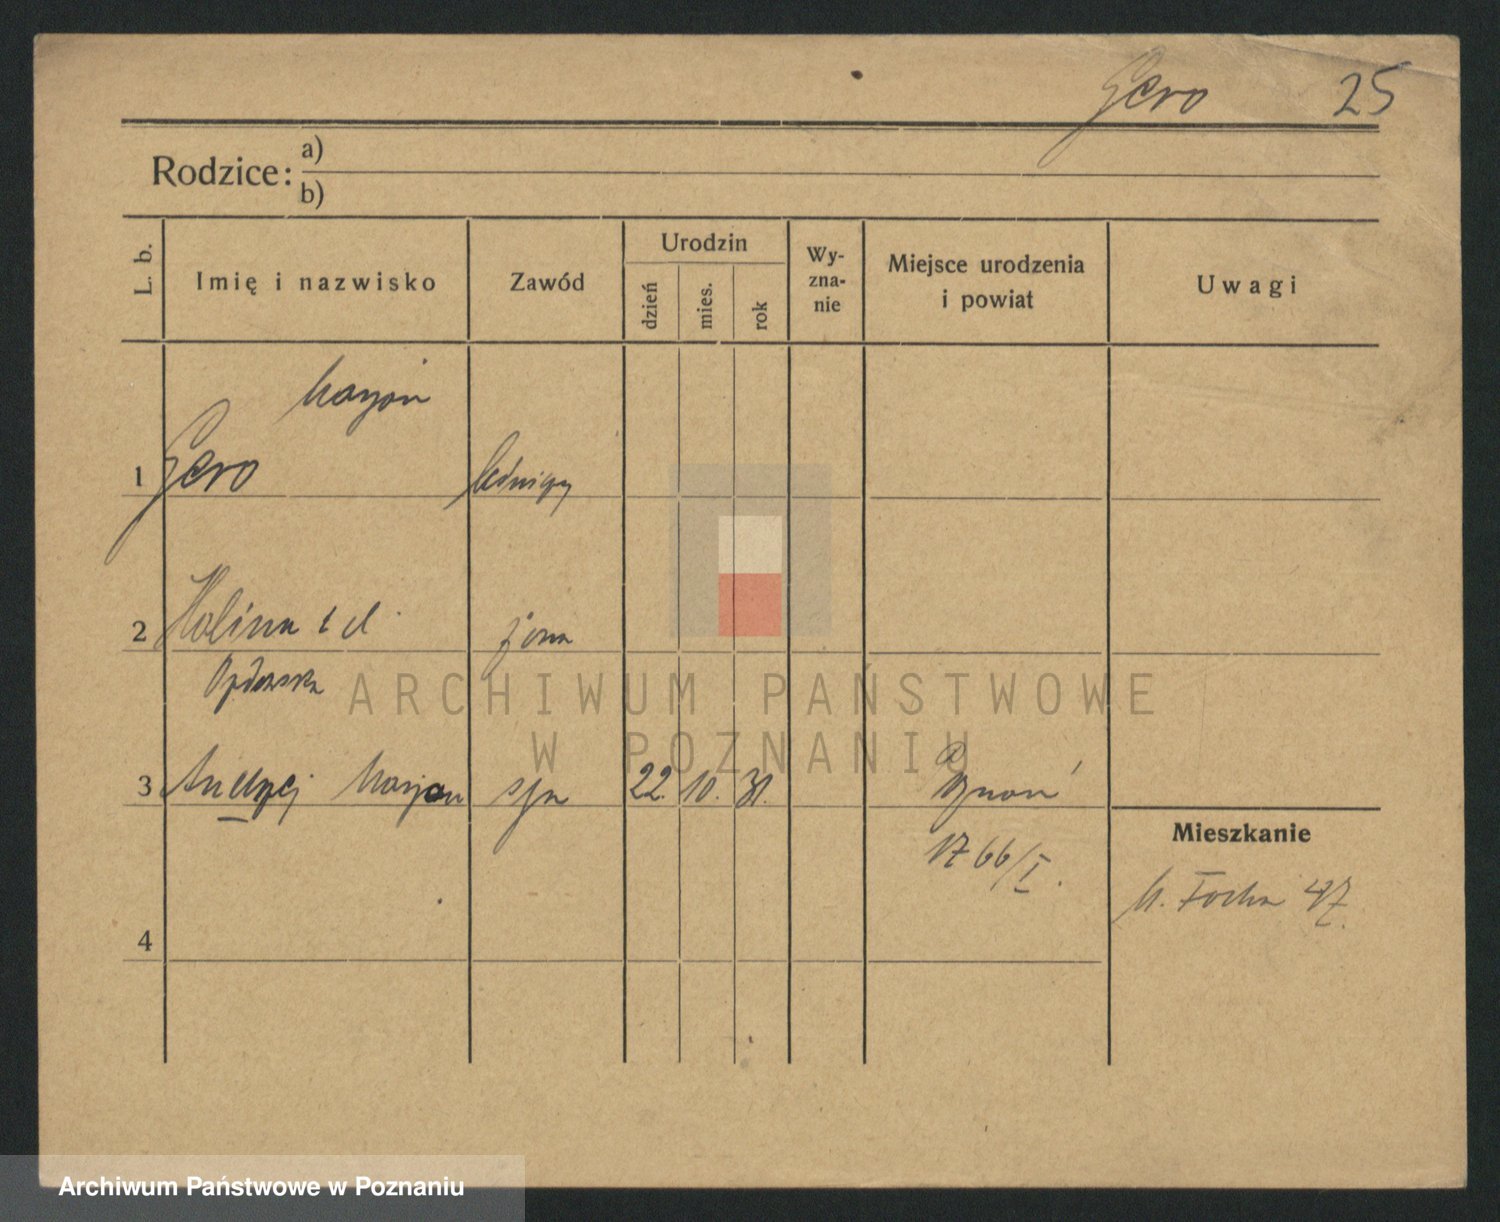 Gero 25
Rodzice: a)
b)
L. b.
Imię i nazwisko
Zawód
Urodzin
dzień
mies.
rok
Wy-
zna-
nie
Miejsce urodzenia
i powiat
Uwagi
Marjan
1 Gero
2 Halina z d. żona
ARCHIWUM PAŃSTWOWE
W POZNANIU
3 Andrzej Marjan syn 22. 10. 31. Poznań
1766/I.
Mieszkanie
M. Focha 47.
4
Archiwum Państwowe w Poznaniu